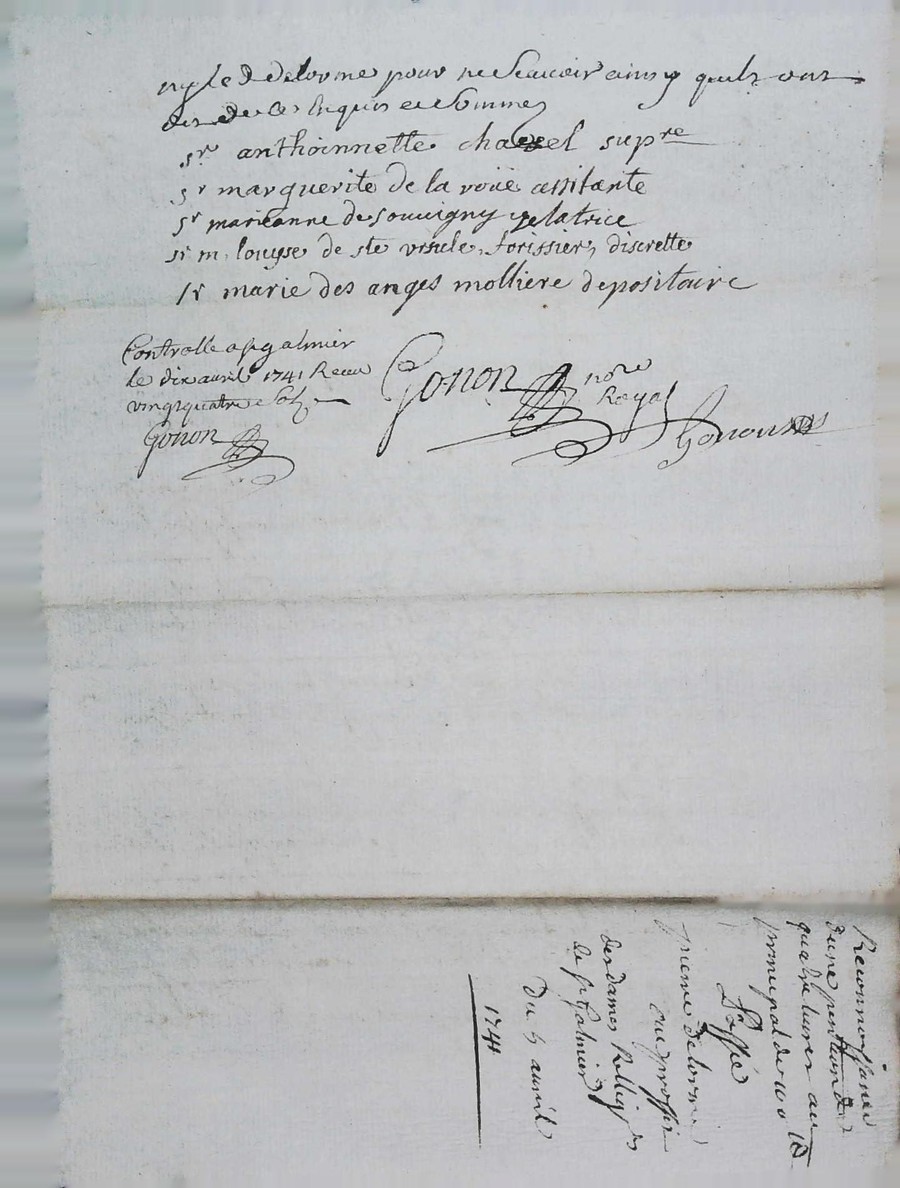 led Delorme pour ne Scavoir ainsy quils ont
de ce Enquis et Sommes
sr anthoinnette chazel supre
sr marguerite de la roüe assitante
sr marieanne de souvigny zelatrice
sr m. louyse de ste vrsule, forissier, discrette
sr marie des anges molliere depositaire
Controlle a st galmier
le dix avril 1741 Receu
vingtquatre Solz
Gonon
Gonon nore
Royal
Gonon
Reconnoissance
dune pention de
quatre livres au
principal de 100 lt
passée
pierre Delorme
au proffit
des dames Relligses
de st Galmier
Du 5 avril
1741